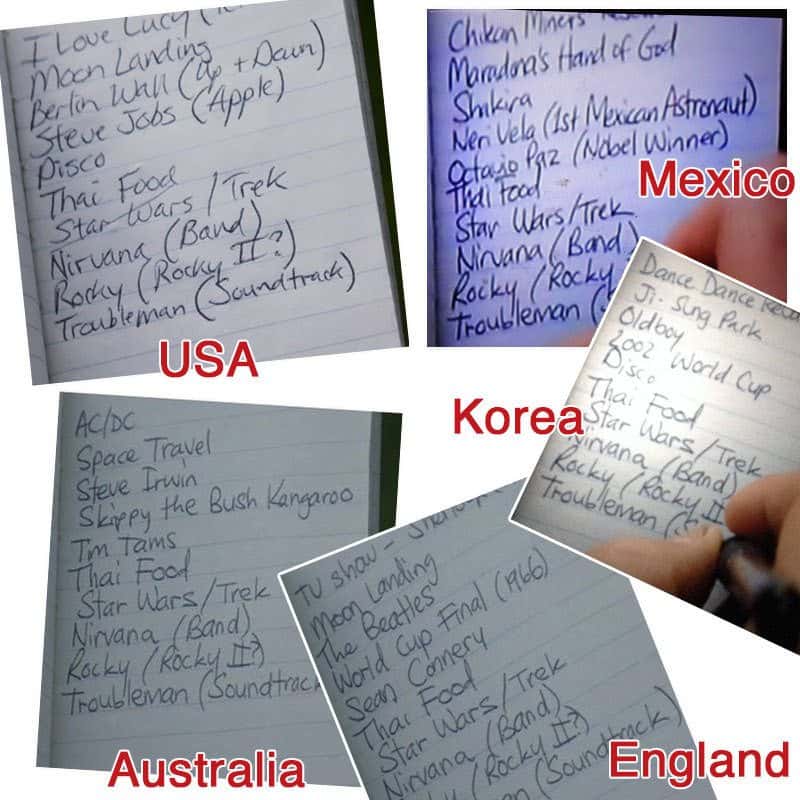 I Love Lucy
Moon Landing
Berlin Wall (Up + Down)
Steve Jobs (Apple)
Disco
Thai Food
Star Wars / Trek
Nirvana (Band)
Rocky (Rocky II?)
Troubleman (Soundtrack)
USA
Chilean Miners
Maradona's Hand of God
Shakira
Neri Vela (1st Mexican Astronaut)
Octavio Paz (Nobel Winner)
Thai Food
Star Wars/Trek
Nirvana (Band)
Rocky (Rocky
Troubleman (
Mexico
Dance Dance
Ji-Sung Park
Oldboy
2002 World Cup
Disco
Thai Food
Star Wars / Trek
Nirvana (Band)
Rocky (Rocky II
Troubleman (S
Korea
AC/DC
Space Travel
Steve Irwin
Skippy the Bush Kangaroo
Tim Tams
Thai Food
Star Wars/Trek
Nirvana (Band)
Rocky (Rocky II?)
Troubleman (Soundtrack
Australia
TV show -
Moon Landing
The Beatles
World Cup Final (1966)
Sean Connery
Thai Food
Star Wars/Trek
Nirvana (Band)
(Rocky II?)
(Soundtrack)
England